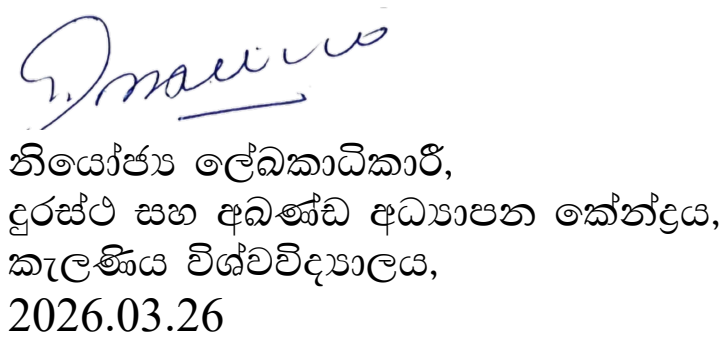 නියෝජ්‍ය ලේඛකාධිකාරී,
දුරස්ථ සහ අඛණ්ඩ අධ්‍යාපන කේන්ද්‍රය,
කැලණිය විශ්වවිද්‍යාලය,
2026.03.26